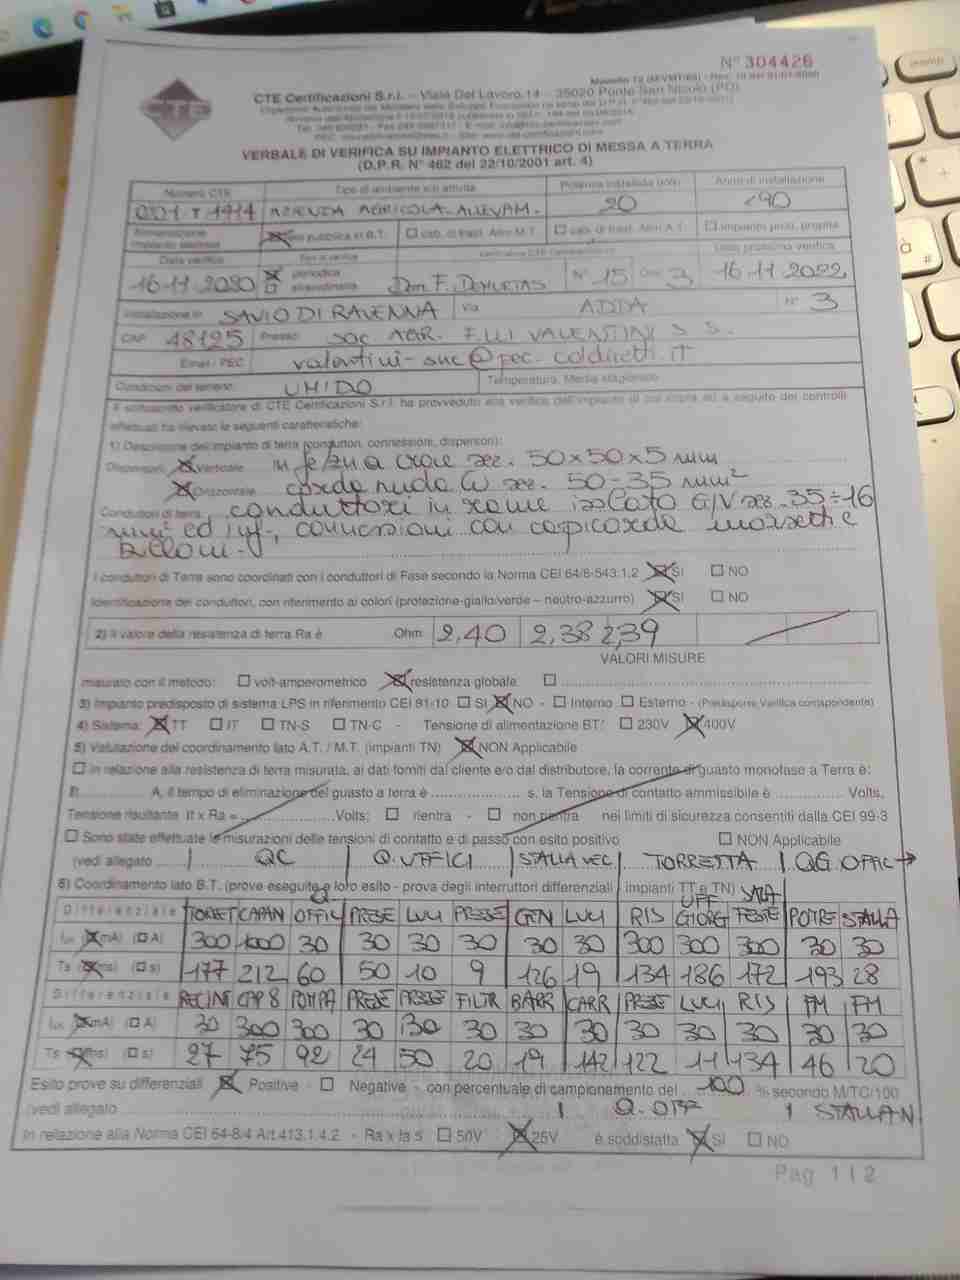 N° 304426
CTE
CTE Certificazioni S.r.l. – Viale Del Lavoro 14 – 35020 Ponte San Nicolò (PD)
VERBALE DI VERIFICA SU IMPIANTO ELETTRICO DI MESSA A TERRA
(D.P.R. N° 462 del 22/10/2001 art. 4)
Numero CTE Tipo di ambiente e/o attività Potenza installata (kW) Anno di installazione
0201 T 1914 AZIENDA AGRICOLA-ALLEVAM. 20 <90
Alimentazione impianto elettrico rete pubblica in B.T. cab. di trasf. Altri M.T. cab. di trasf. Altri A.T. impianto prod. propria
Data verifica Tipo di verifica Verificatore CTE Data prossima verifica
16-11-2020 periodica straordinaria N° 15 Ore 3 16-11-2022
Installazione in SAVIO DI RAVENNA Via ADDA N° 3
CAP 48125 Presso SOC AGR. F.LLI VALENTINI S S.
Email / PEC valentini-snc@pec.coldiretti.it
Condizioni del terreno: UMIDO Temperatura: Media stagionale
Il sottoscritto verificatore di CTE Certificazioni S.r.l. ha provveduto alla verifica dell'impianto di cui sopra ed a seguito dei controlli
effettuati ha rilevato le seguenti caratteristiche:
1) Descrizione dell'impianto di terra (conduttori, connessioni, dispersori):
Dispersori: Verticale in fe/zn a croce sez. 50x50x5 mm
Orizzontale corda nuda Cu sez. 50-35 mm²
Conduttori di terra: conduttori in rame isolato G/V sez. 35÷16
mm² ed inf., connessioni con capicorda morsetti e
bulloni.
I conduttori di Terra sono coordinati con i conduttori di Fase secondo la Norma CEI 64/8-543.1.2 SI NO
Identificazione dei conduttori, con riferimento ai colori (protezione-giallo/verde – neutro-azzurro) SI NO
2) Il valore della resistenza di terra Ra è Ohm 2,40 2,38 2,39
VALORI MISURE
misurato con il metodo: volt-amperometrico resistenza globale
3) Impianto predisposto di sistema LPS in riferimento CEI 81-10 SI NO - Interno Esterno - (Predisporre Verifica corrispondente)
4) Sistema: TT IT TN-S TN-C - Tensione di alimentazione BT: 230V 400V
5) Valutazione del coordinamento lato A.T. / M.T. (impianti TN) NON Applicabile
In relazione alla resistenza di terra misurata, ai dati forniti dal cliente e/o dal distributore, la corrente di guasto monofase a Terra è:
It A, il tempo di eliminazione del guasto a terra è s, la Tensione di contatto ammissibile è Volts,
Tensione risultante It x Ra = Volts: rientra - non rientra nei limiti di sicurezza consentiti dalla CEI 99-3
Sono state effettuate le misurazioni delle tensioni di contatto e di passo con esito positivo NON Applicabile
(vedi allegato QC Q. UFFICI STALLA VEC TORRETTA QG. OFFIC →
6) Coordinamento lato B.T. (prove eseguite e loro esito - prova degli interruttori differenziali impianti TT e TN)
Differenziale TORRET CAPAN OFFIC PRESE LUCI PRESE GEN LUCI RIS UFF GIORG POTRE STALLA
(mA) (A) 300 1000 30 30 30 30 30 30 300 300 300 30 30
Ts (ms) (s) 177 212 60 50 10 9 126 19 134 186 172 193 28
Differenziale RECINT CAP 8 POMPA PRESE PRESE FILTR BARR CARR PRESE LUCI RIS FM FM
(mA) (A) 30 300 300 30 30 30 30 30 30 30 30 30 30
Ts (ms) (s) 27 75 92 24 50 20 19 142 122 11 134 46 20
Esito prove su differenziali Positive - Negative - con percentuale di campionamento del 100 % secondo M/TC/100
(vedi allegato Q. OFF STALLA N
In relazione alla Norma CEI 64-8/4 Art.413.1.4.2 - Ra x Ia ≤ 50V 25V è soddisfatta SI NO
Pag 1 | 2